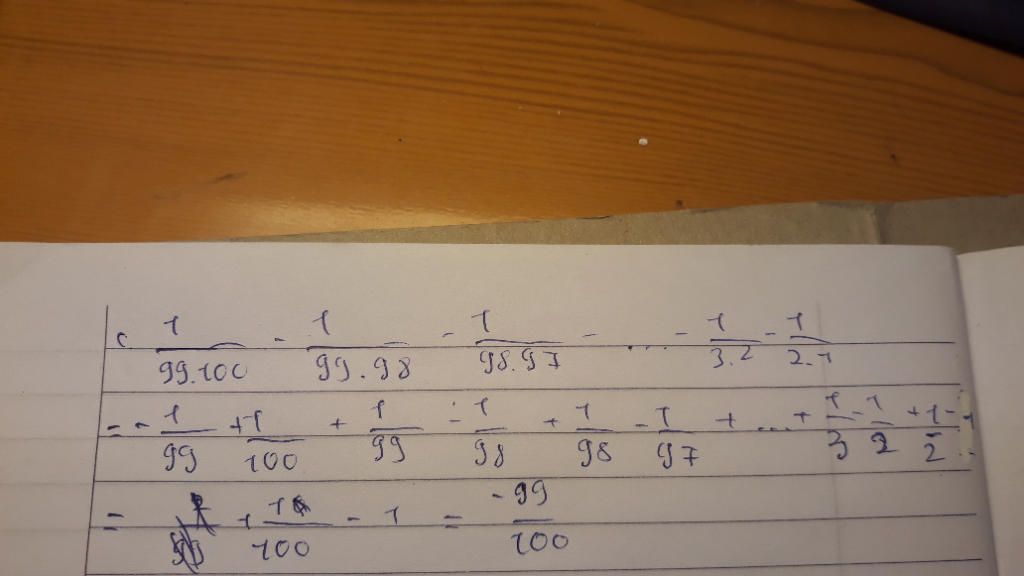 c 1/99.100 - 1/99.98 - 1/98.97 - ... - 1/3.2 - 1/2.1
= - 1/99 + 1/100 + 1/99 - 1/98 + 1/98 - 1/97 + ... + 1/3 - 1/2 + 1/2 - 1
= + 1/100 - 1 = -99/100